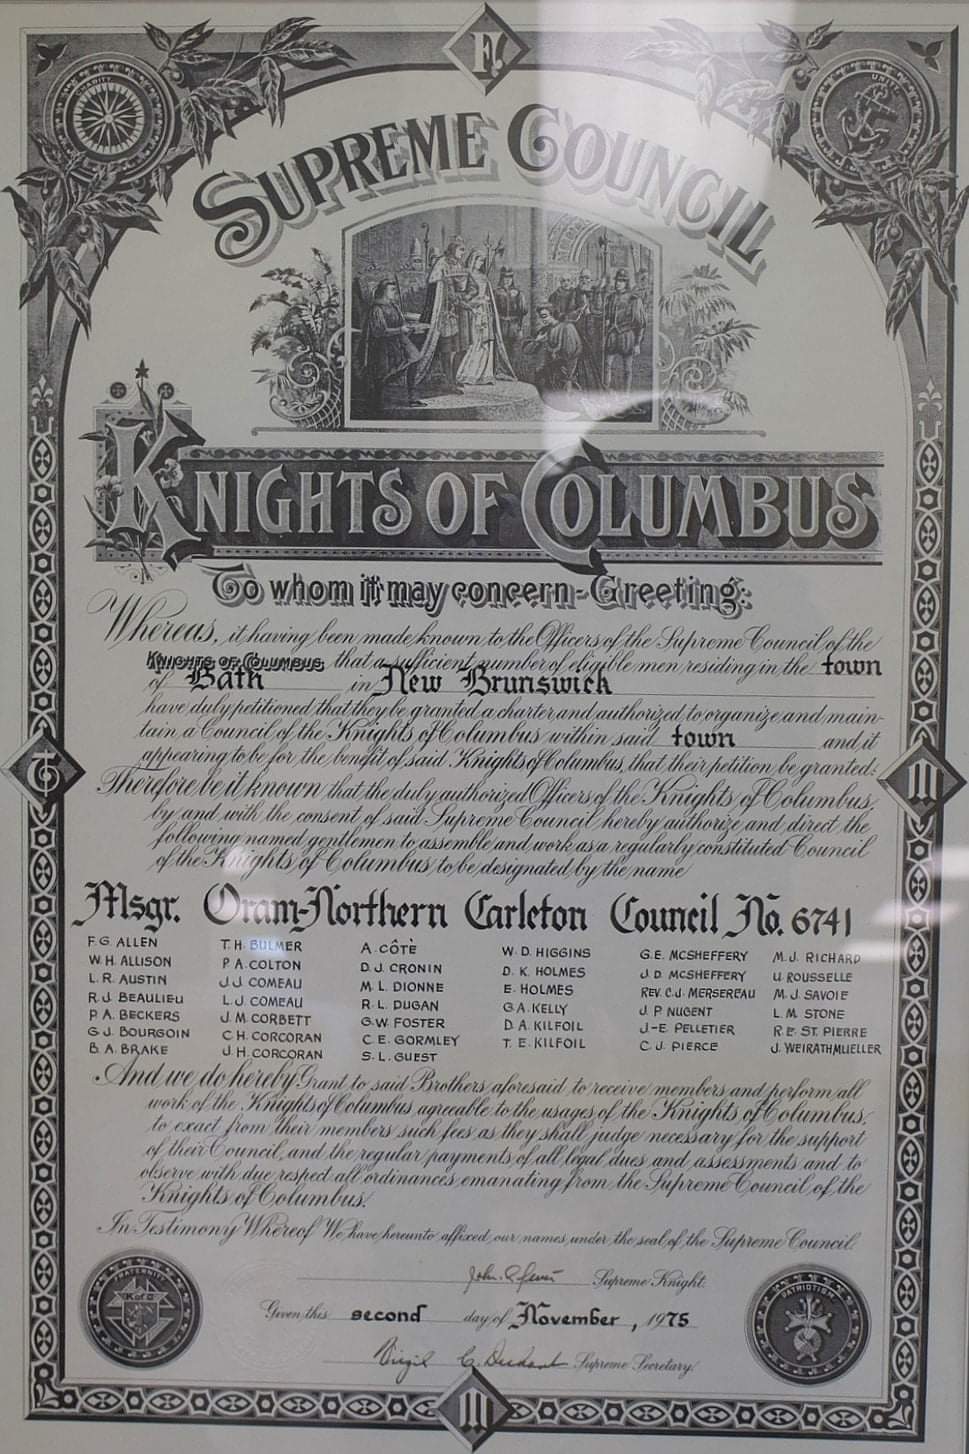 F!
CHARITY
UNITY
SUPREME COUNCIL
KNIGHTS OF COLUMBUS
To whom it may concern - Greeting:
Whereas, it having been made known to the Officers of the Supreme Council of the
KNIGHTS OF COLUMBUS, that a sufficient number of eligible men residing in the town
of Bath in New Brunswick
have duly petitioned that they be granted a charter and authorized to organize and main-
tain a Council of the Knights of Columbus within said town and it
appearing to be for the benefit of said Knights of Columbus, that their petition be granted:
Therefore be it known that the duly authorized Officers of the Knights of Columbus,
by and with the consent of said Supreme Council hereby authorize and direct the
following named gentlemen to assemble and work as a regularly constituted Council
of the Knights of Columbus to be designated by the name
Msgr. Oram-Northern Carleton Council No. 6741
F.G. ALLEN T.H. BULMER A. CÔTÈ W.D. HIGGINS G.E. MCSHEFFERY M.J. RICHARD
W.H. ALLISON P.A. COLTON D.J. CRONIN D.K. HOLMES J.D. MCSHEFFERY U. ROUSSELLE
L.R. AUSTIN J.J. COMEAU M.L. DIONNE E. HOLMES REV. C.J. MERSEREAU M.J. SAVOIE
R.J. BEAULIEU L.J. COMEAU R.L. DUGAN G.A. KELLY J.P. NUGENT L.M. STONE
P.A. BECKERS J.M. CORBETT G.W. FOSTER D.A. KILFOIL J-E. PELLETIER R.E. ST. PIERRE
G.J. BOURGOIN C.H. CORCORAN C.E. GORMLEY T.E. KILFOIL C.J. PIERCE J. WEIRATHMUELLER
B.A. BRAKE J.H. CORCORAN S.L. GUEST
And we do hereby Grant to said Brothers aforesaid to receive members and perform all
work of the Knights of Columbus agreeable to the usages of the Knights of Columbus,
to exact from their members such fees as they shall judge necessary for the support
of their Council, and the regular payments of all legal dues and assessments and to
observe with due respect all ordinances emanating from the Supreme Council of the
Knights of Columbus.
In Testimony Whereof We have hereunto affixed our names under the seal of the Supreme Council.
FRATERNITY
K of C
PATRIOTISM
John Supreme Knight.
Given this second day of November, 1975
Virgil C. Dechant Supreme Secretary.